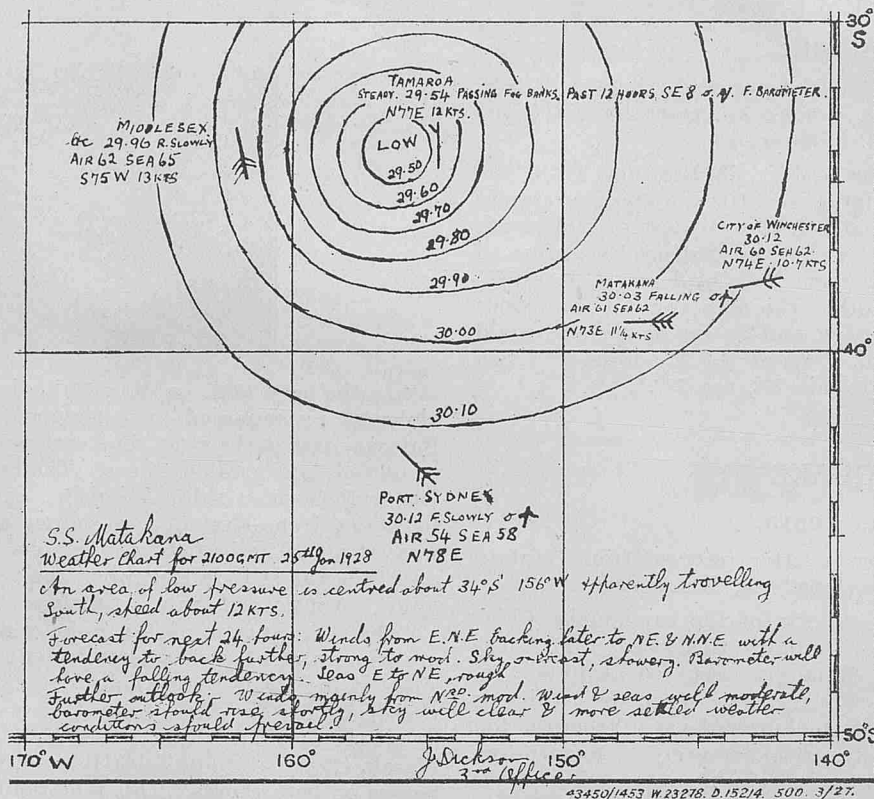 30°
S
TAMAROA
STEADY. 29.54 PASSING FOG BANKS. PAST 12 HOURS SE 8 F. BAROMETER.
N77E 12 KTS.
MIDDLESEX
bc 29.96 R. SLOWLY
AIR 62 SEA 65
S75W 13 KTS
LOW
29.50
29.60
29.70
29.80
29.90
30.00
30.10
CITY OF WINCHESTER
30.12
AIR 60 SEA 62.
N74E. 10.7 KTS
MATAKANA
30.03 FALLING
AIR 61 SEA 62
N73E 11¼ KTS
40°
PORT SYDNEY
30.12 F. SLOWLY
AIR 54 SEA 58
N78E
S.S. Matakana
Weather Chart for 2100 GMT 25th Jan 1928
An area of low pressure is centred about 34°S 156°W apparently travelling
South, speed about 12 KTS.
Forecast for next 24 hours: Winds from E.N.E backing later to NE & N.N.E with a
tendency to back further, strong to mod. Sky overcast, showery. Barometer will
have a falling tendency. Seas E to NE, rough
Further outlook - Winds mainly from mod. Wind & seas will moderate,
barometer should rise shortly, sky will clear & more settled weather
conditions should prevail.
50°S
170°W
160°
150°
140°
J. Dickson
3rd Officer
43450/1453 W.23278. D.152/4. 500. 3/27.